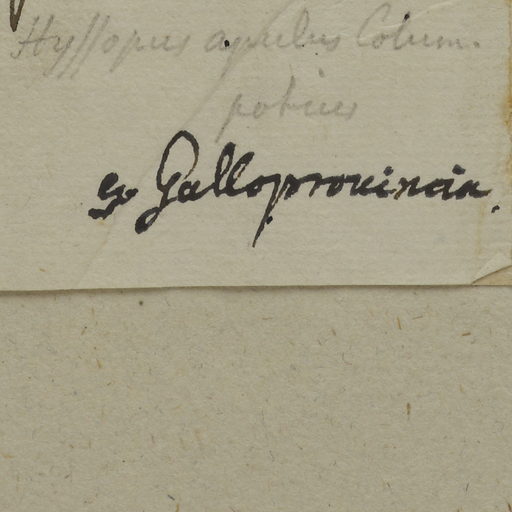 Hyssopus apulus Colum.
potius
ex Galloprovincia.